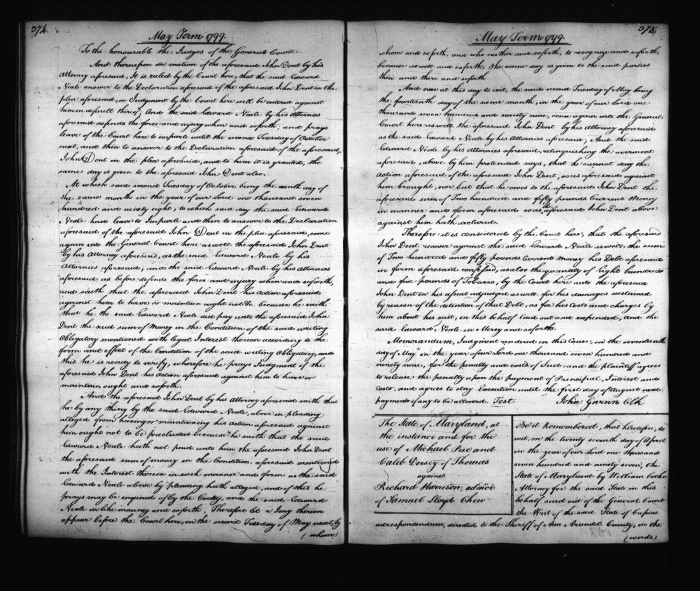 374.
May Term 1799.
To the honourable the Judges of the General Court.
And thereupon on motion of the aforesaid John Dent by his
Attorney aforesaid, It is ruled by the Court here, that he said Edward
Neale answer to the Declaration aforesaid of the aforesaid John Dent in the
plea aforesaid, or Judgment by the Court here will be entered against
him in default thereof. And the said Edward Neale by his Attornies
aforesaid defends the force and injury when and so forth, and prays
leave of the Court here to imparle until the second Tuesday of October
next, and then to answer to the Declaration aforesaid of the aforesaid
John Dent in the plea aforesaid, and to him it is granted, the
same day is given to the aforesaid John Dent also.
At which said second Tuesday of October being the ninth day of
the same month in the year of our Lord one thousand seven
hundred and ninety eight, to which said day the said Edward
Neale had leave to Imparle and then to answer to the Declaration
aforesaid of the aforesaid John Dent in the plea aforesaid, came
again into the General Court here as well the aforesaid John Dent
by his Attorney aforesaid, as the said Edward Neale by his
Attornies aforesaid, and the said Edward Neale by his Attornies
aforesaid as before defends the force and injury when and so forth,
and saith that the aforesaid John Dent his action aforesaid
against him to have or maintain ought not Because he saith
that he the said Edward Neale did pay unto the aforesaid John
Dent the said sum of Money in the Condition of the said writing
Obligatory mentioned with legal Interest thereon according to the
form and effect of the Condition of the said writing Obligatory, and
this he is ready to verify, wherefore he prays Judgment if the
aforesaid John Dent his action aforesaid against him to have or
maintain ought and soforth.
And the aforesaid John Dent by his Attorney aforesaid saith that
he by any thing by the said Edward Neale, above in pleading
alleged from having or maintaining his action aforesaid against
him ought not to be precluded because he saith that the said
Edward Neale hath not paid unto him the aforesaid John Dent
the aforesaid sum of money in the Condition aforesaid mentioned
with the Interest thereon in such manner and form as the said
Edward Neale above by pleading hath alleged, and of this he
prays may be enquired of by the County, and the said Edward
Neale in like manner and soforth, Therefore let a Jury thereon
appear before the Court here, on the second Tuesday of May next, by
(whom)
375.
May Term 1799.
whom and soforth, and who neither and soforth, to recognize and soforth
because as well and soforth the same day is given to the said parties
then and there and soforth
And now at this day to wit, the said second Tuesday of May being
the fourteenth day of the same month, in the year of our Lord one
thousand seven hundred and ninety nine, came again into the General
Court here as well the aforesaid John Dent by his Attorney aforesaid
as the said Edward Neale by his Attornies aforesaid, And the said
Edward Neale by his Attornies aforesaid, relinquishing the averment
aforesaid, above by him pretended says, that he cannot deny the
Action aforesaid of the aforesaid John Dent, as aforesaid against
him brought, nor but that he owes to the aforesaid John Dent the
aforesaid sum of Two hundred and fifty pounds Current Money
in manner and form aforesaid as aforesaid John Dent above
against him hath declared.
Therefore it is considered by the Court here, that the aforesaid
John Dent recover against the said Edward Neale as well the sum
of Two hundred and fifty pounds Current Money his Debt aforesaid
in form aforesaid confessed, as also the quantity of Eight hundred
and five pounds of Tobacco, by the Court here unto the aforesaid
John Dent on his assent adjudged as well for his damages sustained
by reason of the detention of that Debt, as for his Costs and charges by
him about his suit, in this behalf laid out and expended, and the
said Edward Neale in Mercy and soforth.
Memorandum, Judgment rendered in this Cause, on the seventeenth
day of May in the year of our Lord one thousand seven hundred and
ninety nine, for the penalty and costs of Suit and the plaintiff agrees
to release the penalty upon the payment of Principal, Interest and
Costs, and agrees to stay Execution until the first day of August next,
payments if any to be allowed. Test. John Gwinn Clk
The State of Maryland, at
the instance and for the
use of Michael Pue and
Caleb Dorsey of Thomas
against
Richard Harrison, admor
of Samuel Lloyd Chew
Be it remembered, that heretofore, to
wit, on the twenty seventh day of April
in the year of our Lord one thousand
seven hundred and ninety seven, the
State of Maryland by William Cooke
Attorney for the said State in this
behalf sued out of the General Court
the Writ of the said State of Capias
ad respondendum, directed to the Sheriff of Ann Arundel County, in the
(words)